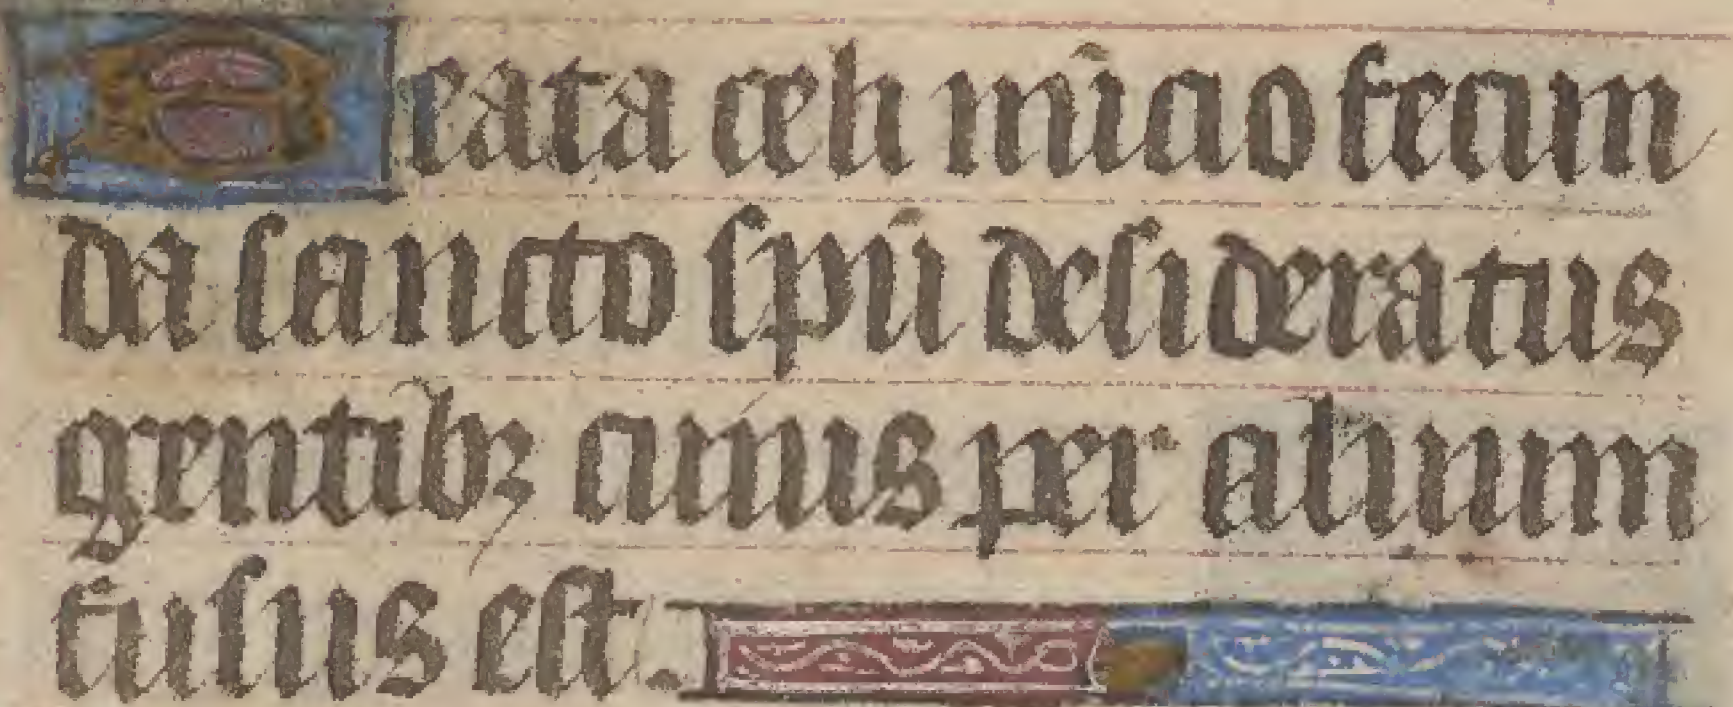 Beata celi nu̅cio fecun
da sancto spu̅ desideratus
gentibꝫ cuius per aluum
fusus est.